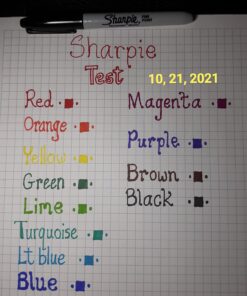 Sharpie
Sharpie
Test
10, 21, 2021
Red
Orange
Yellow
Green
Lime
Turquoise
Lt blue
Blue
Magenta
Purple
Brown
Black